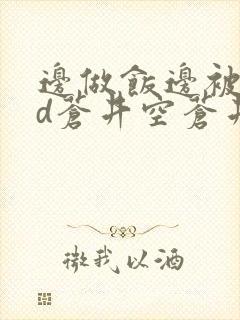 邊做飯邊被
d蒼井空蒼井
微我以酒